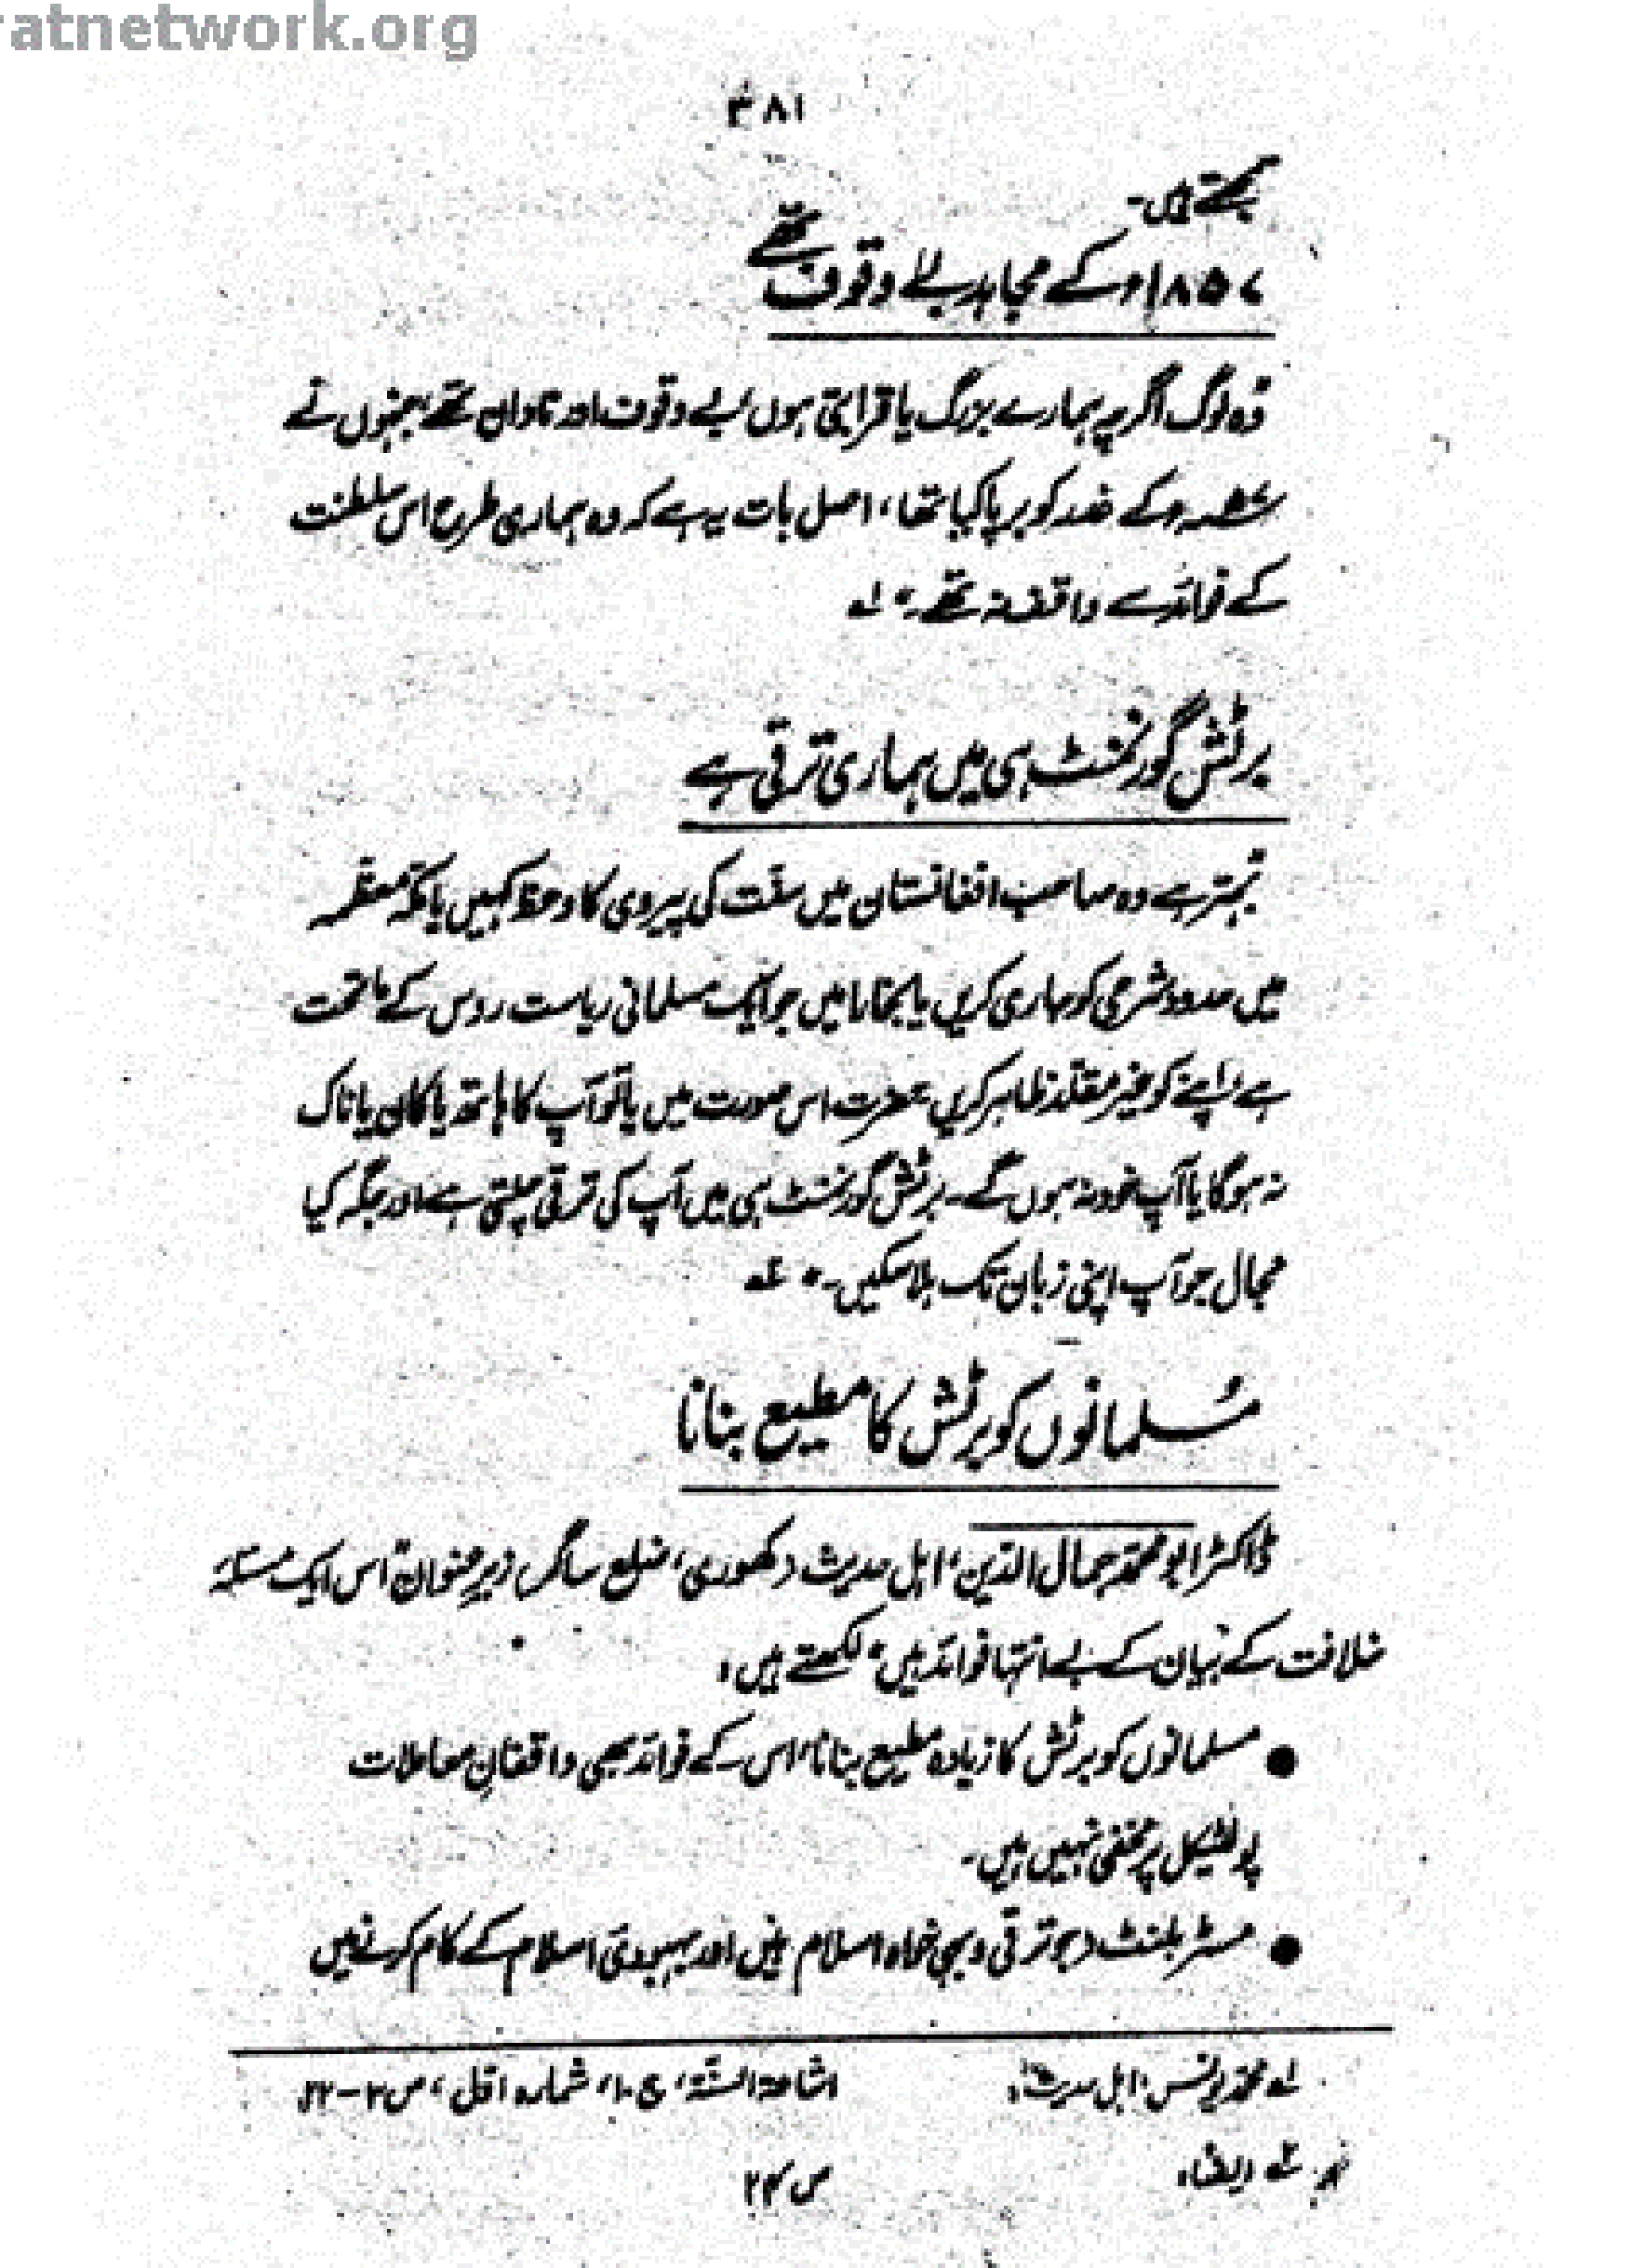 ratnetwork.org
۳۸۱
سکتے ہیں۔
۱۸۵۷ء کے مجاہد بے وقوف تھے
وہ لوگ اگرچہ ہمارے بزرگ یا قرابتی ہوں بے وقوف اور نادان تھے، جنہوں نے
کے غدر کو برپا کیا تھا، اصل بات یہ ہے کہ وہ ہماری طرح اس سلطنت
کے فوائد سے واقف نہ تھے۔" لہ
برٹش گورنمنٹ ہی میں ہماری ترقی ہے
بہتر ہے وہ صاحب افغانستان میں سنّت کی پیروی کا وعظ کہیں یا مکّہ معظّمہ
میں حدود شرعی کو جاری کریں یا بخارا میں جو ایک مسلمانی ریاست روس کے ماتحت
ہے، اپنے کو غیر مقلّد ظاہر کریں حضرت اس صورت میں یا تو آپ کا ہاتھ یا کان یا ناک
نہ ہوگا یا آپ خود نہ ہوں گے۔ برٹش گورنمنٹ ہی میں آپ کی ترقی چلتی ہے اور جگہ کیا
مجال جو آپ اپنی زبان تک ہلا سکیں۔" ٢ہ
مُسلمانوں کو برٹش کا مطیع بنانا
ڈاکٹر ابو محمّد جمال الدّین، اہل حدیث (کھوری، ضلع ساگر) زیرِ عنوان "اس ایک مسئلہ
خلافت کے بیان کے بے انتہا فوائد ہیں" لکھتے ہیں:
● مسلمانوں کو برٹش کا زیادہ مطیع بنانا، اس کے فوائد بھی واقفانِ معاملات
پولٹیکل پر مخفی نہیں ہیں۔
● مسٹر بلنٹ (جو ترقی و بہی خواہ اسلام ہیں اور بہبودئ اسلام کے کام کرنے میں
لہ محمّد یونس، اہل حدیث: اشاعۃ السّنۃ، ج ۱۰، شمارہ اوّل، ص
٢ہ ایضاً، ص ۲۴